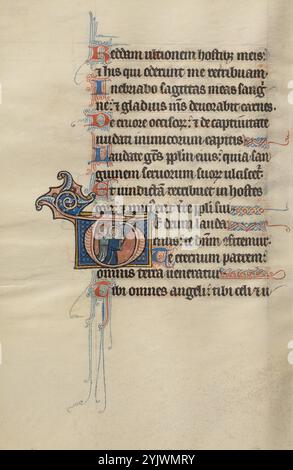 Reddam ultionem hostibz meis:
⁊ his qui oderunt me retribuam.
Inebriabo sagittas meas sang
ne: ⁊ gladius ms deuorabit carnes.
De cruore occisor: ⁊ de captiuitate
nudati inimicorum capitis
Laudate gens pplm eius: quia san
guinem seruorum suor ulciscet
Et uindictam retribuet in hostes
terre ppli sui
Te deum lauda
mus: te dnm confitemur.
Te eternum patrem:
omnis terra ueneratur
Tibi omnes angeli: tibi celi ⁊ u
2YJWMRY